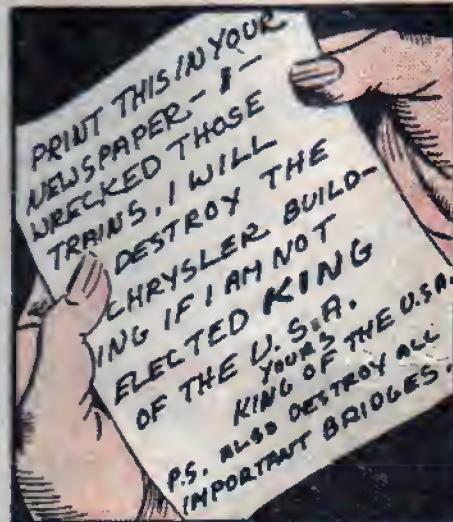 PRINT THIS IN YOUR
NEWSPAPER - I -
WRECKED THOSE
TRAINS. I WILL
DESTROY THE
CHRYSLER BUILD-
ING IF I AM NOT
ELECTED KING
OF THE U.S.A.
YOURS
KING OF THE U.S.A.
P.S. ALSO DESTROY ALL
IMPORTANT BRIDGES.